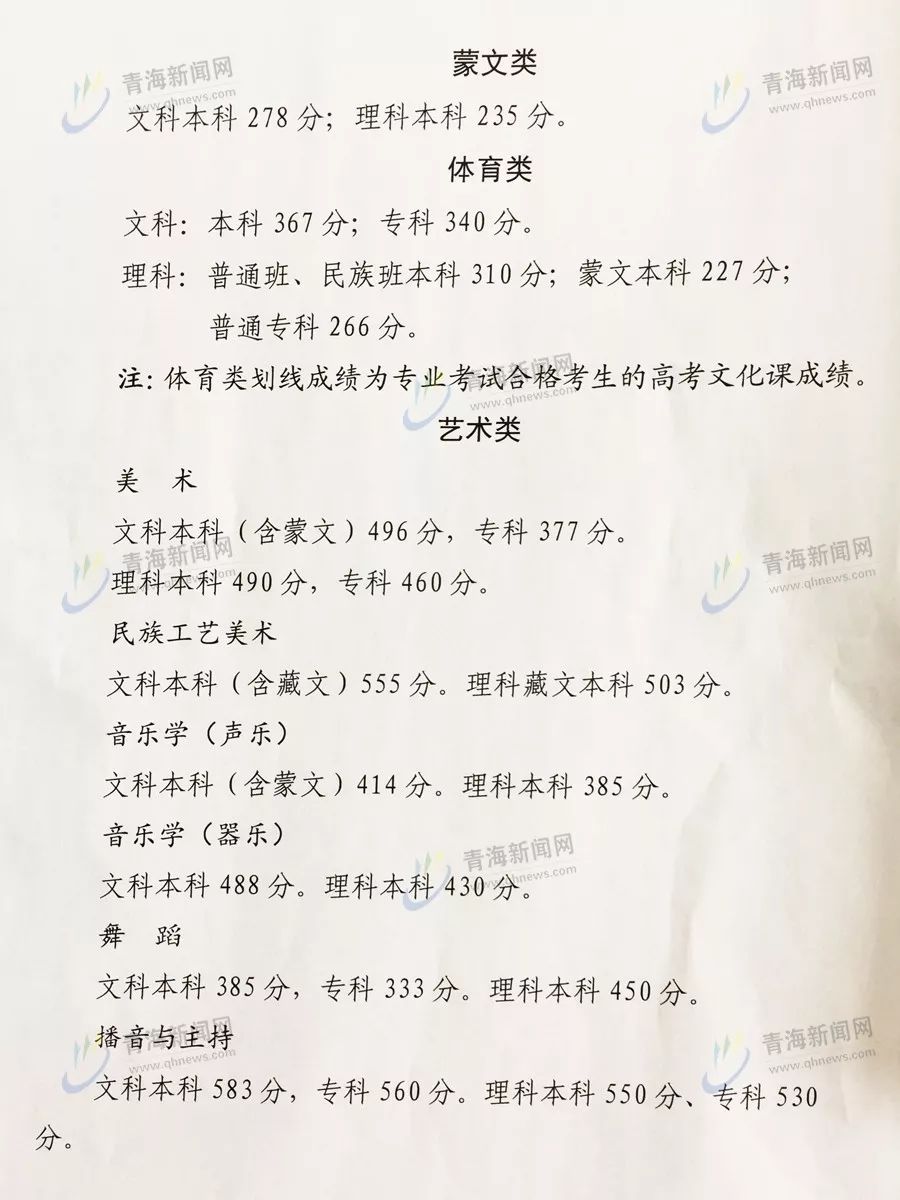 蒙文类
青海新闻网
www.qhnews.com
青海新闻网
www.qhnews.com
文科本科 278 分；理科本科 235 分。
体育类
文科：本科 367 分；专科 340 分。
理科：普通班、民族班本科 310 分；蒙文本科 227 分；
普通专科 266 分。
注：体育类划线成绩为专业考试合格考生的高考文化课成绩。
青海新闻网
www.qhnews.com
艺术类
美 术
文科本科（含蒙文）496 分，专科 377 分。
青海新闻网
www.qhnews.com
青海新闻网
www.qhnews.com
理科本科 490 分，专科 460 分。
民族工艺美术
文科本科（含藏文）555 分。理科藏文本科 503 分。
音乐学（声乐）
文科本科（含蒙文）414 分。理科本科 385 分。
音乐学（器乐）
青海新闻网
www.qhnews.com
文科本科 488 分。理科本科 430 分。
舞 蹈
文科本科 385 分，专科 333 分。理科本科 450 分。
播音与主持
青海新闻网
www.qhnews.com
青海新闻网
www.qhnews.com
文科本科 583 分，专科 560 分。理科本科 550 分、专科 530
分。